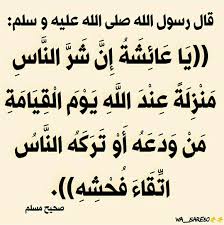 قال رسول الله صلى الله عليه و سلم:
((يَا عَائِشَةُ إِنَّ شَرَّ النَّاسِ
مَنْزِلَةً عِنْدَ اللَّهِ يَوْمَ الْقِيَامَةِ
مَنْ وَدَعَهُ أَوْ تَرَكَهُ النَّاسُ
اتِّقَاءَ فُحْشِهِ)).
صحيح مسلم